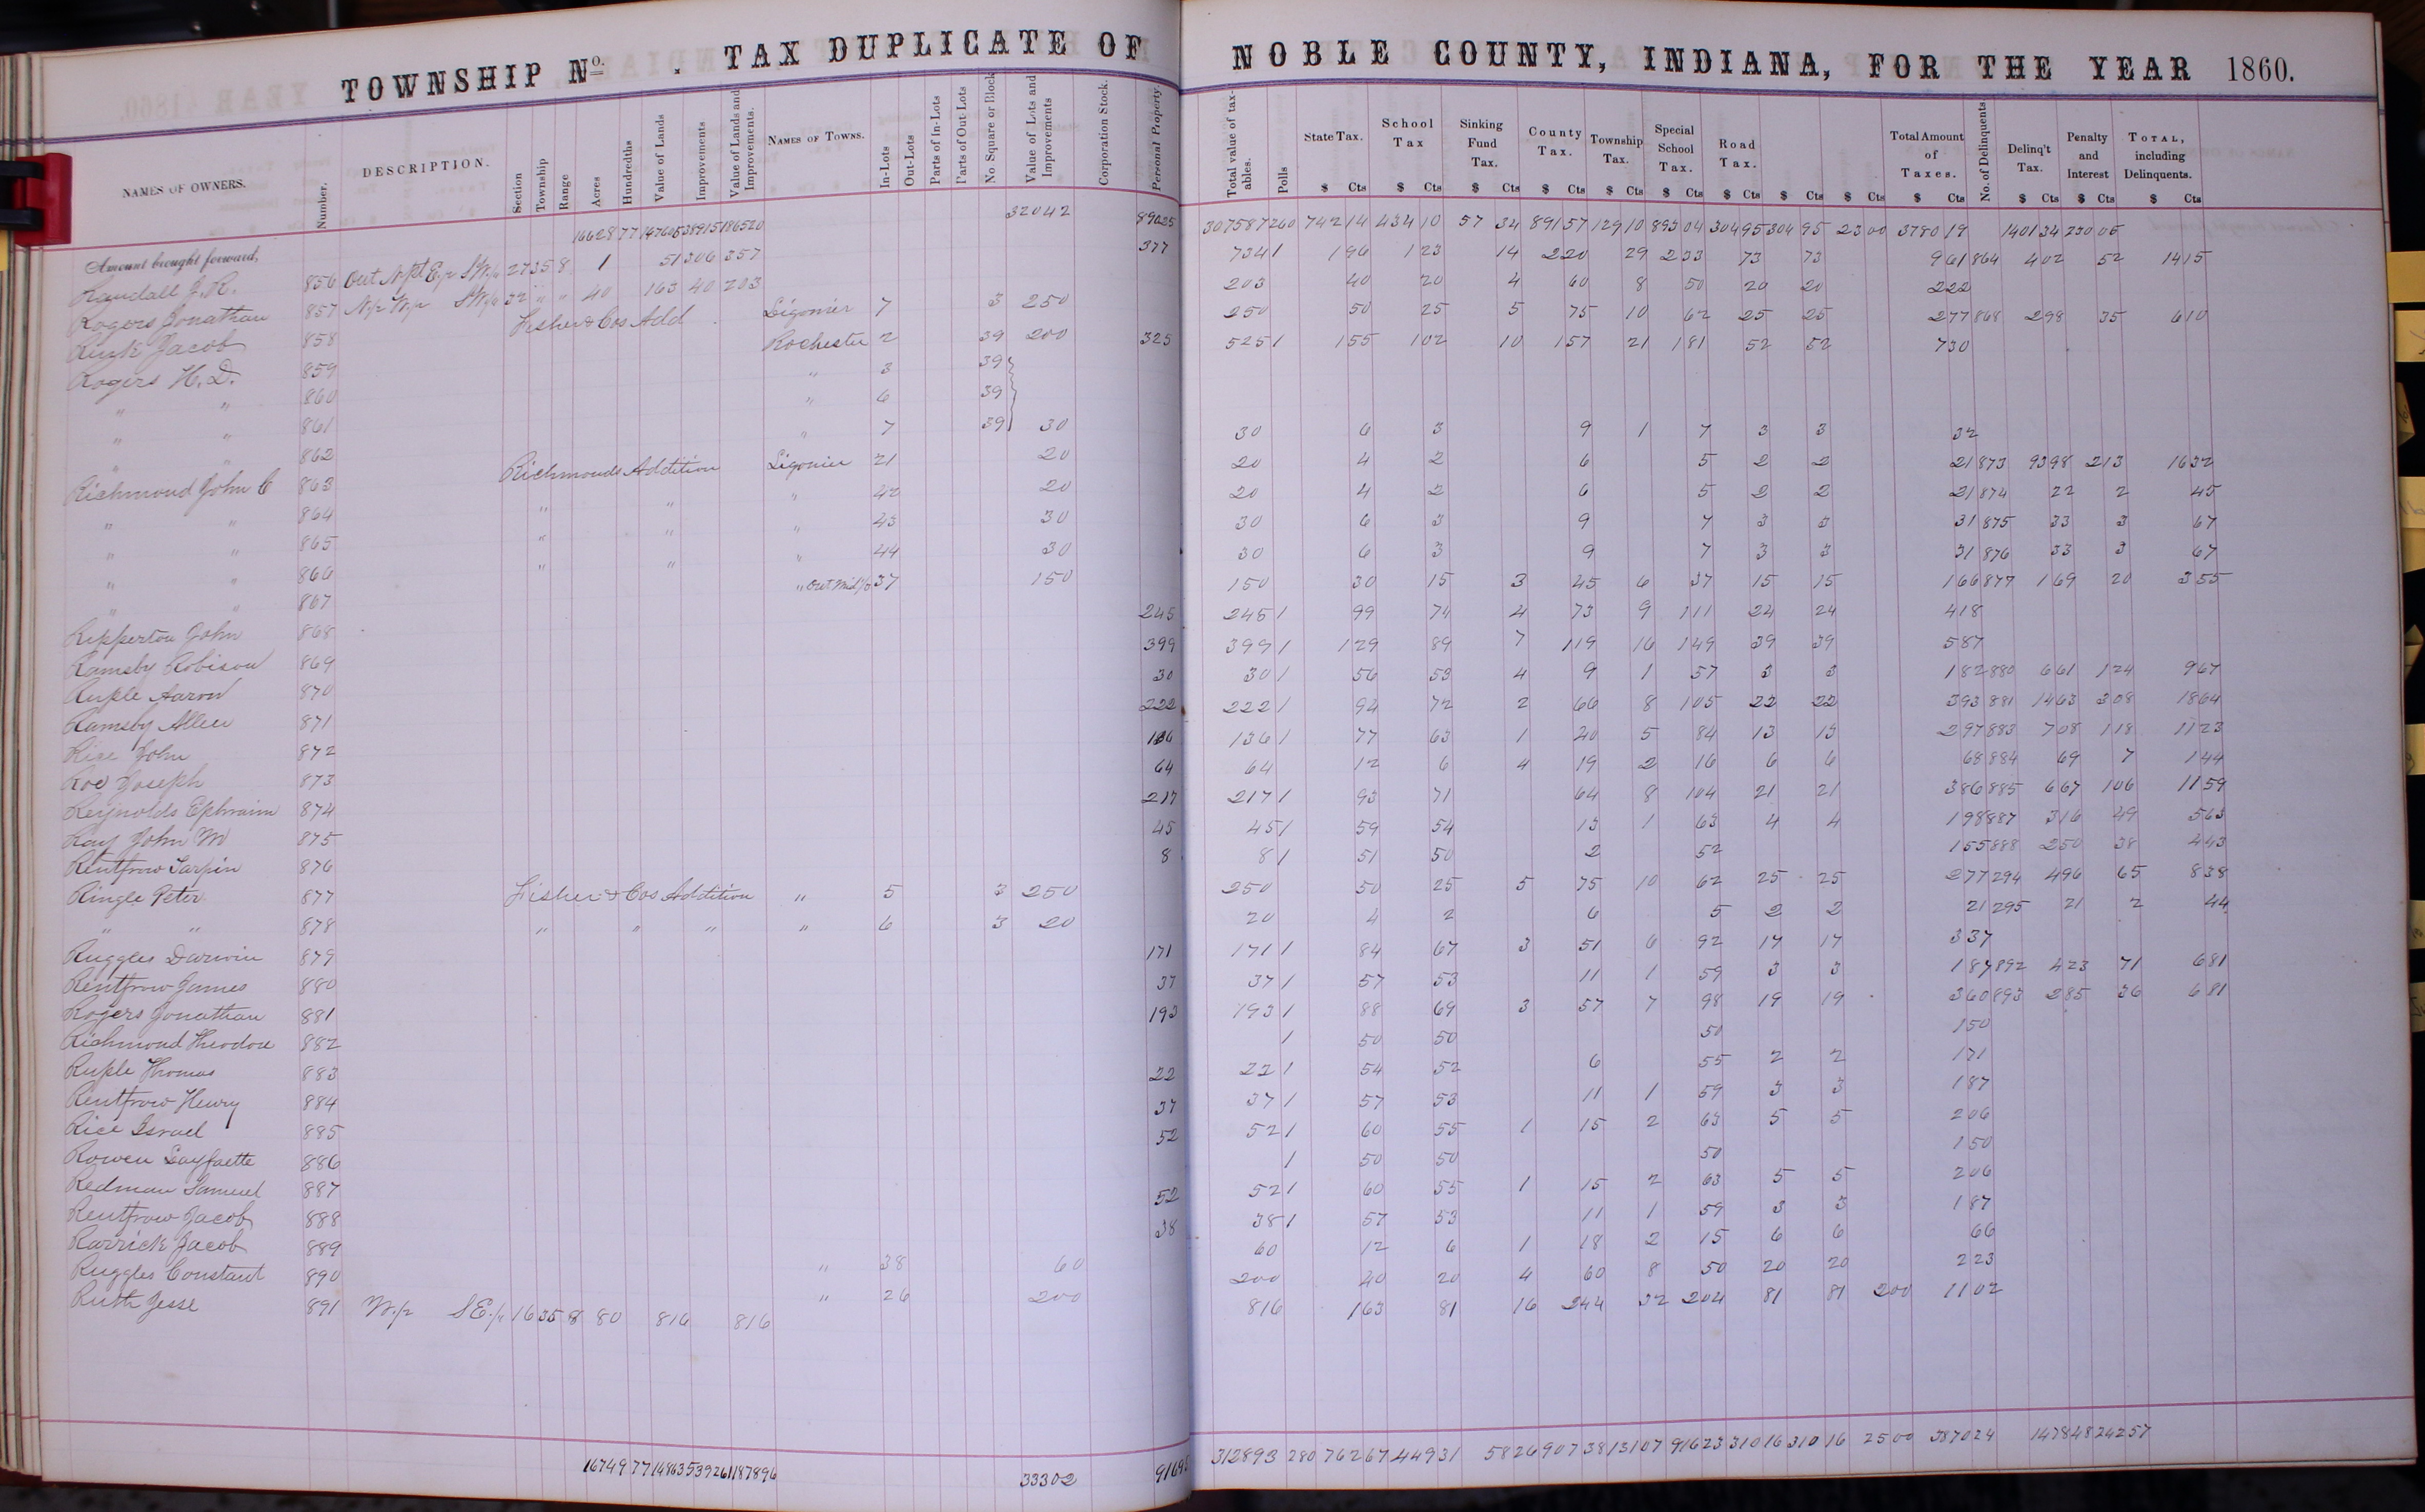 TOWNSHIP No. . TAX DUPLICATE OF NOBLE COUNTY, INDIANA, FOR THE YEAR 1860.
NAMES OF OWNERS. Number. DESCRIPTION. Section Township Range Acres Hundredths Value of Lands Improvements Value of Lands and Improvements. NAMES OF TOWNS. In-Lots Out-Lots Parts of In-Lots Parts of Out-Lots No Square or Block Value of Lots and Improvements Corporation Stock. Personal Property. Total value of taxables. Polls State Tax. School Tax Sinking Fund Tax. County Tax. Township Tax. Special School Tax. Road Tax. Total Amount of Taxes. No. of Delinquents. Delinq't Tax. Penalty and Interest TOTAL, including Delinquents.
$ Cts $ Cts $ Cts $ Cts $ Cts $ Cts $ Cts $ Cts $ Cts $ Cts $ Cts $ Cts $ Cts
Amount brought forward, 16628 77 147605 38915 186520 32042 89025 307587 260 742 14 434 10 57 34 891 57 129 10 893 04 304 95 304 95 23 00 3780 19 1401 34 230 05
Randall J. R. 856 Out N. pt E 1/2 S W 1/4 27 35 8 1 51 306 357 377 734 1 1 96 1 23 14 2 20 29 2 33 73 73 9 61 864 4 02 52 14 15
Rogers Jonathan 857 N 1/2 W 1/2 S W 1/4 32 " " 40 163 40 203 203 40 20 4 60 8 50 20 20 2 22
Rink Jacob 858 Fisher & Cos Add Ligonier 7 3 250 250 50 25 5 75 10 62 25 25 2 77 868 2 98 35 6 10
Rogers H. D. 859 Rochester 2 39 200 325 525 1 1 55 1 02 10 1 57 21 1 81 52 52 7 30
" " 860 " 3 39
" " 861 " 6 39
" " 862 " 7 39 30 30 6 3 9 1 7 3 3 32
Richmond John C 863 Richmonds Addition Ligonier 21 20 20 4 2 6 5 2 2 21 873 93 98 2 13 16 32
" " 864 " " " 42 20 20 4 2 6 5 2 2 21 874 22 2 45
" " 865 " " " 43 30 30 6 3 9 7 3 3 31 875 33 3 67
" " 866 " " " 44 30 30 6 3 9 7 3 3 31 876 33 3 67
" " 867 " Out Mid 1/3 37 150 150 30 15 3 45 6 37 15 15 1 66 877 1 69 20 3 55
Ripperton John 868 245 245 1 99 74 4 73 9 1 11 24 24 4 18
Ramsby Robison 869 399 399 1 1 29 89 7 1 19 16 1 49 39 39 5 87
Ruple Aaron 870 30 30 1 56 53 4 9 1 57 3 3 1 82 880 6 61 1 24 9 67
Ramsby Allen 871 222 222 1 94 72 2 66 8 1 05 22 22 3 93 881 14 63 3 08 18 64
Rice John 872 136 136 1 77 63 1 40 5 84 13 13 2 97 883 7 08 1 18 11 23
Roe Joseph 873 64 64 12 6 4 19 2 16 6 6 68 884 69 7 1 44
Reynolds Ephraim 874 217 217 1 93 71 64 8 1 04 21 21 3 86 885 6 67 1 06 11 59
Ray John M 875 45 45 1 59 54 13 1 63 4 4 1 98 887 3 16 49 5 63
Rentfrow Tarpin 876 8 8 1 51 50 2 52 1 55 888 2 50 38 4 43
Ringle Peter 877 Fisher & Cos Addition " 5 3 250 250 50 25 5 75 10 62 25 25 2 77 294 4 96 65 8 38
" " 878 " " " " 6 3 20 20 4 2 6 5 2 2 21 295 21 2 44
Ruggles Darwin 879 171 171 1 84 67 3 51 6 92 17 17 3 37
Rentfrow James 880 37 37 1 57 53 11 1 59 3 3 1 87 892 4 23 71 6 81
Rogers Jonathan 881 193 193 1 88 69 3 57 7 98 19 19 3 60 893 2 85 36 6 81
Richmond Theodore 882 1 50 50 50 1 50
Ruple Thomas 883 22 22 1 54 52 6 55 2 2 1 71
Rentfrow Henry 884 37 37 1 57 53 11 1 59 3 3 1 87
Rice Israel 885 52 52 1 60 55 1 15 2 63 5 5 2 06
Rowen Layfaette 886 1 50 50 50 1 50
Redman Samuel 887 52 52 1 60 55 1 15 2 63 5 5 2 06
Rentfrow Jacob 888 38 38 1 57 53 11 1 59 3 3 1 87
Rarrick Jacob 889 " 38 60 60 12 6 1 18 2 15 6 6 66
Ruggles Constant 890 " 26 200 200 40 20 4 60 8 50 20 20 2 23
Ruth Jesse 891 W 1/2 S E 1/4 16 35 8 80 816 816 816 1 63 81 16 2 44 32 2 04 81 81 2 00 11 02
16749 77 148635 39261 187896 33302 91695 312893 280 762 67 449 31 58 26 907 38 131 07 916 23 310 16 310 16 25 00 3870 24 1478 48 242 57